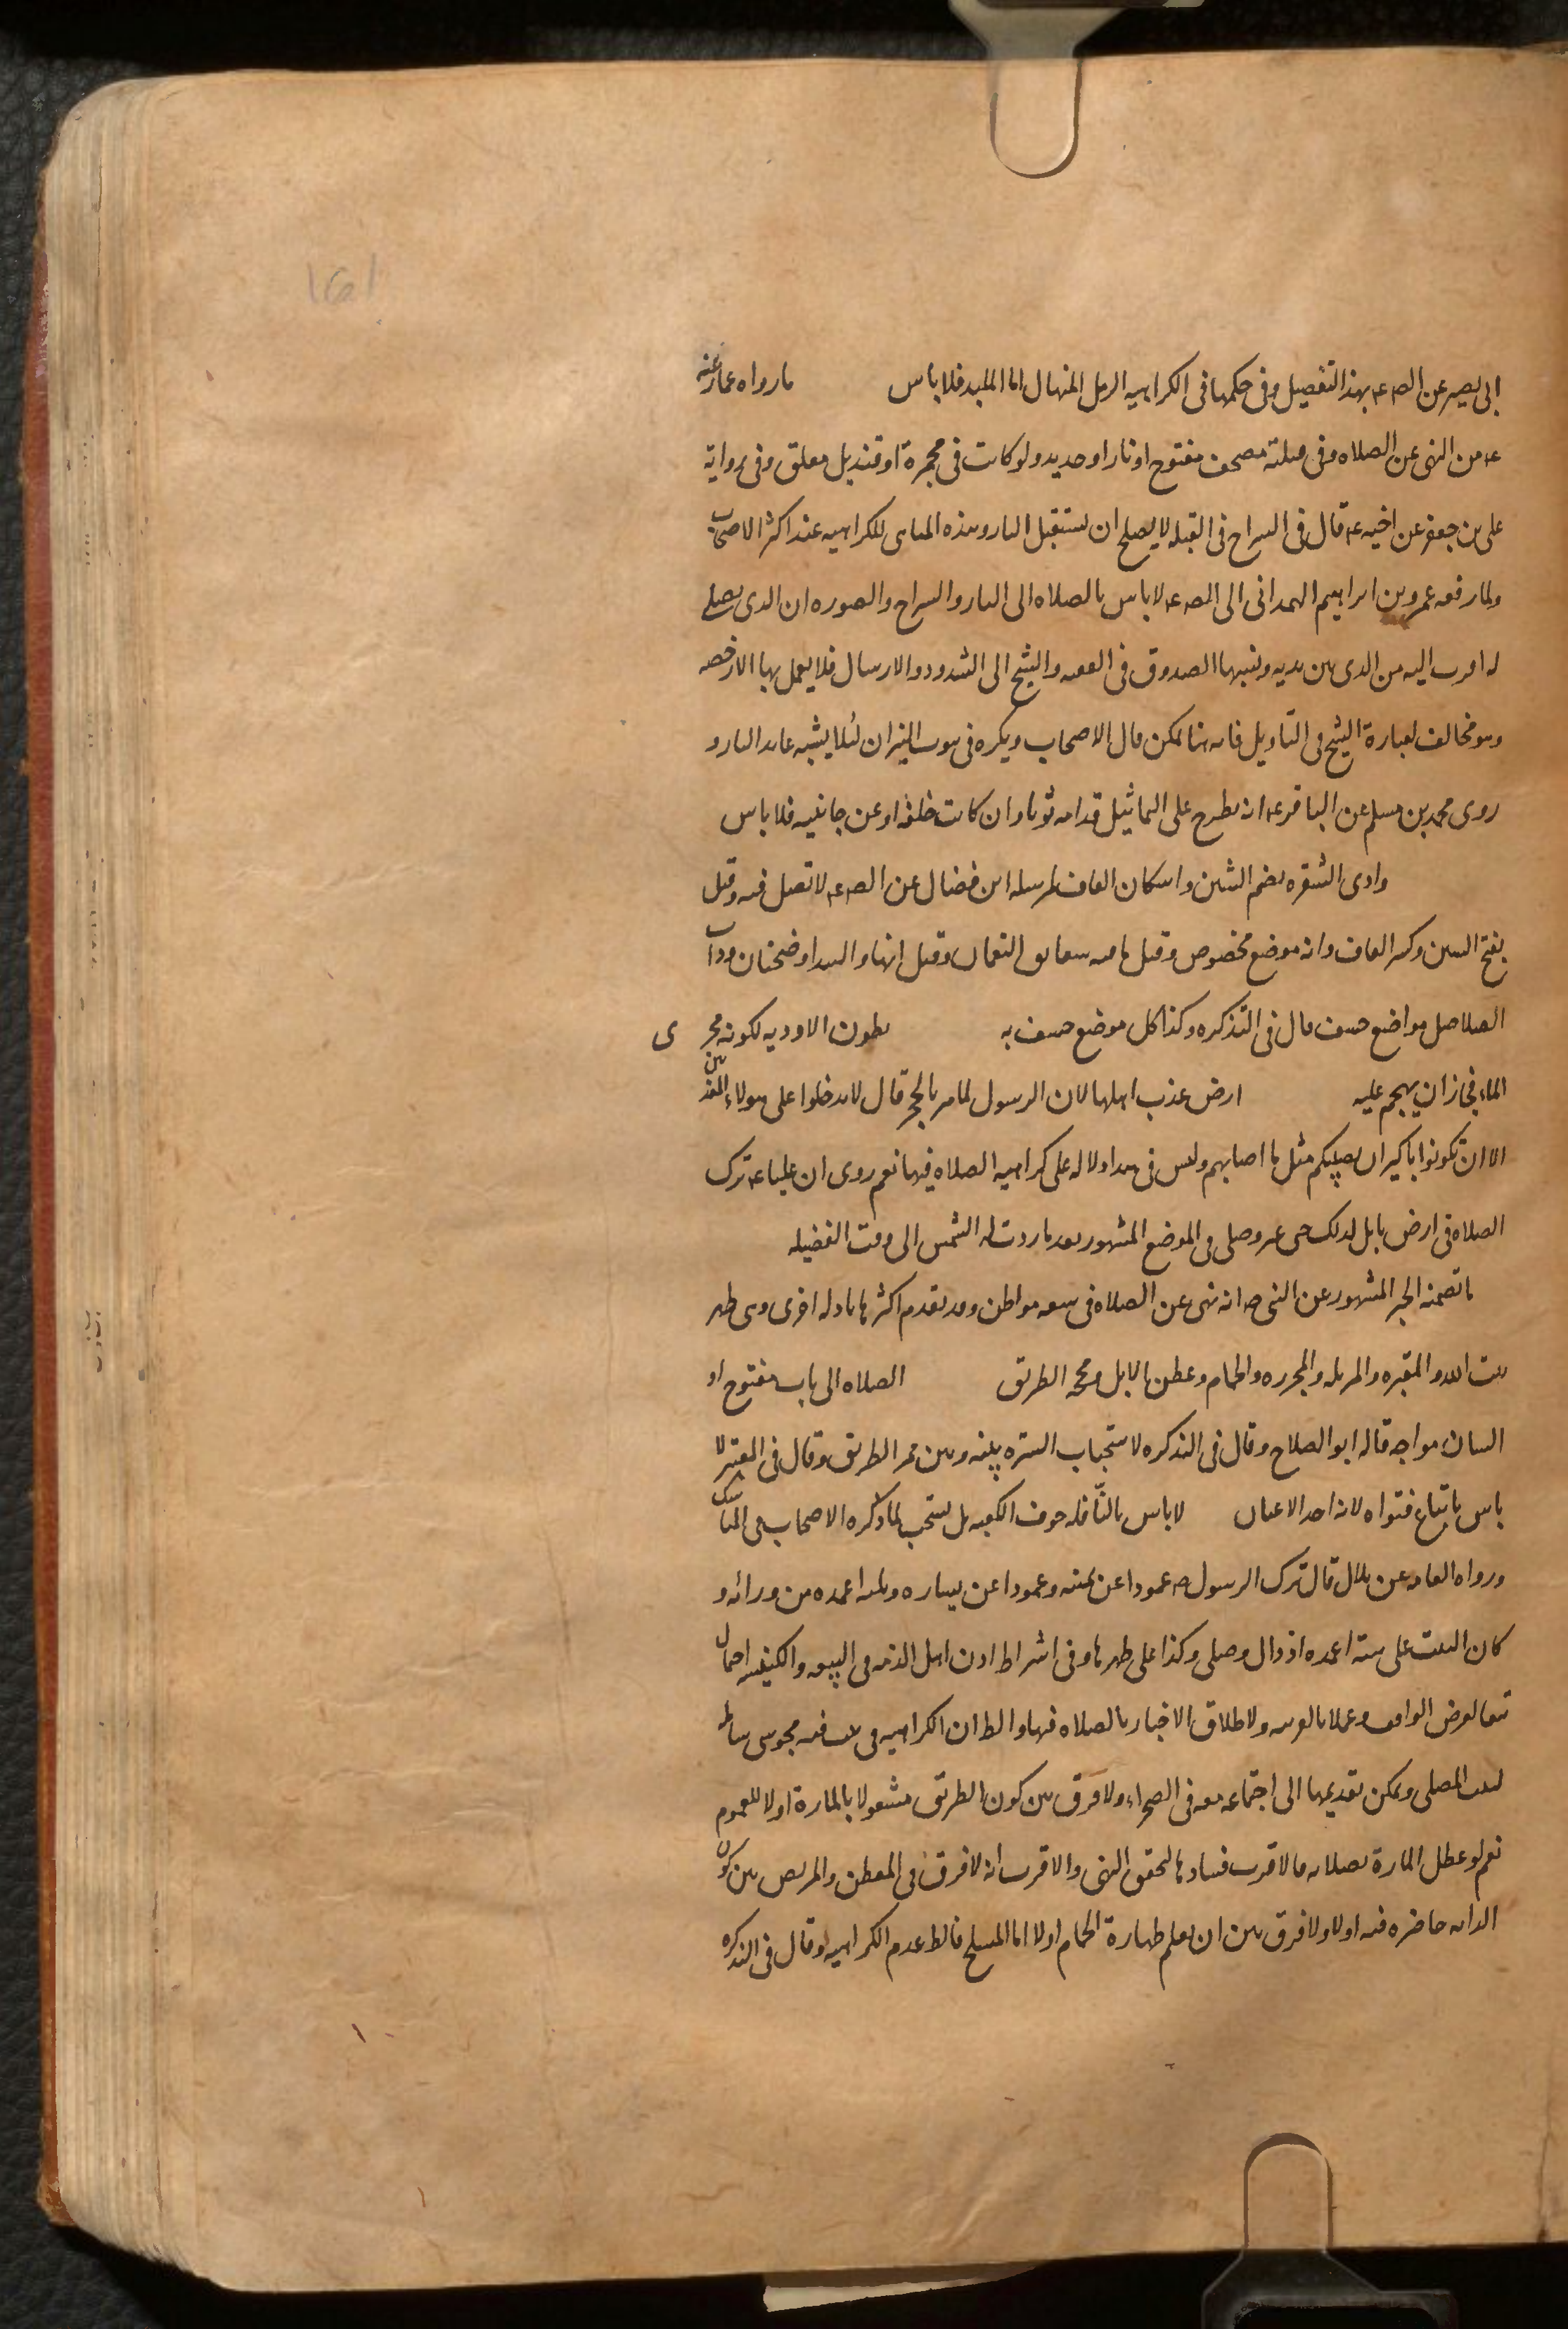 ابى بصير عن الص ع بهذا التفصيل وفى حكمها فى الكراهيه الرمل المنهال اما الملبد فلا باس ما رواه عمار عنه
ع من النهى عن الصلاه وفى قبلته مصحف مفتوح او نار او حديد ولو كانت فى مجمرة او قنديل معلق وفى رواية
على بن جعفر عن اخيه ع قال فى السراج فى القبله لا يصلح ان يستقبل النار وهذه المناهى للكراهيه عند اكثر الاصحاب
ولما رفعه عمرو بن ابراهيم الهمدانى الى الص ع لا باس بالصلاه الى النار والسراج والصوره ان الذى يصلى
له اقرب اليه من الذى بين يديه ونسبها الصدوق فى الفقيه والشيخ الى الشذوذ والارسال فلا يعمل بها الا رخصه
وهو مخالف لعبارة الشيخ فى التاويل فانه هنا ممكن قال الاصحاب ويكره فى بيوت النيران لئلا يشبه عابد النار و
روى محمد بن مسلم عن الباقر ع انه يطرح على التماثيل قدامه ثوبا وان كانت خلفه او عن جانبيه فلا باس
وادى الشقره بضم الشين واسكان القاف لمرسله ابن فضال عن الص ع لا تصل فيه وقيل
بفتح الشين وكسر القاف وانه موضع مخصوص وقيل ما فيه شقايق النعمان وقيل انها والبيدا وضجنان وذات
الصلاصل مواضع خسف قال فى التذكره وكذا كل موضع خسف به بطون الاوديه لكونه مجرى
الماء فجاز ان يهجم عليه ارض عذب اهلها لان الرسول لما مر بالحجر قال لا تدخلوا على هولاء المعذبين
الا ان تكونوا باكين ان يصيبكم مثل ما اصابهم وليس فى هذا دلاله على كراهيه الصلاه فيها نعم روى ان عليا ع ترك
الصلاه فى ارض بابل لذلك حتى عبر وصلى فى الموضع المشهور بعد ما ردت له الشمس الى وقت الفضيله
ما تضمنه الخبر المشهور عن النبى ص انه نهى عن الصلاه فى سبعه مواطن وقد تقدم اكثرها بادله اخرى وهى ظهر
بيت الله والمقبره والمزبله والمجزره والحمام وعطن الابل ومحجه الطريق الصلاه الى باب مفتوح او
انسان مواجه قاله ابو الصلاح وقال فى التذكره لاستحباب الستره بينه وبين ممر الطريق وقال فى المعتبر لا
باس باتباع فتواه لانه احد الاعيان لا باس بالنافله جوف الكعبه بل يستحب لما ذكره الاصحاب فى المناسك
ورواه العامه عن بلال قال ترك الرسول ص عمودا عن يمينه وعمودا عن يساره وثلثه اعمده من ورائه و
كان البيت على سته اعمده اذ ذاك وصلى وكذا على ظهرها وفى اشتراط اذن اهل الذمه فى البيعه والكنيسه احتمال
تبعا لغرض الواقف وعملا بالقرينه ولاطلاق الاخبار بالصلاه فيها والظ ان الكراهيه فى بيت فيه مجوسى
لبيت المصلى ويمكن تعديها الى اجتماعه معه فى الصحراء ولا فرق بين كون الطريق مشغولا بالمارة او لا للعموم
نعم لو عطل المارة بصلاته فالاقرب فسادها لتحقق النهى والاقرب انه لا فرق فى المعطن والمربض بين كون
الدابه حاضره فيه اولا ولا فرق بين ان يعلم طهارة الحمام اولا اما المسلخ فالظ عدم الكراهيه وقال فى التذكره